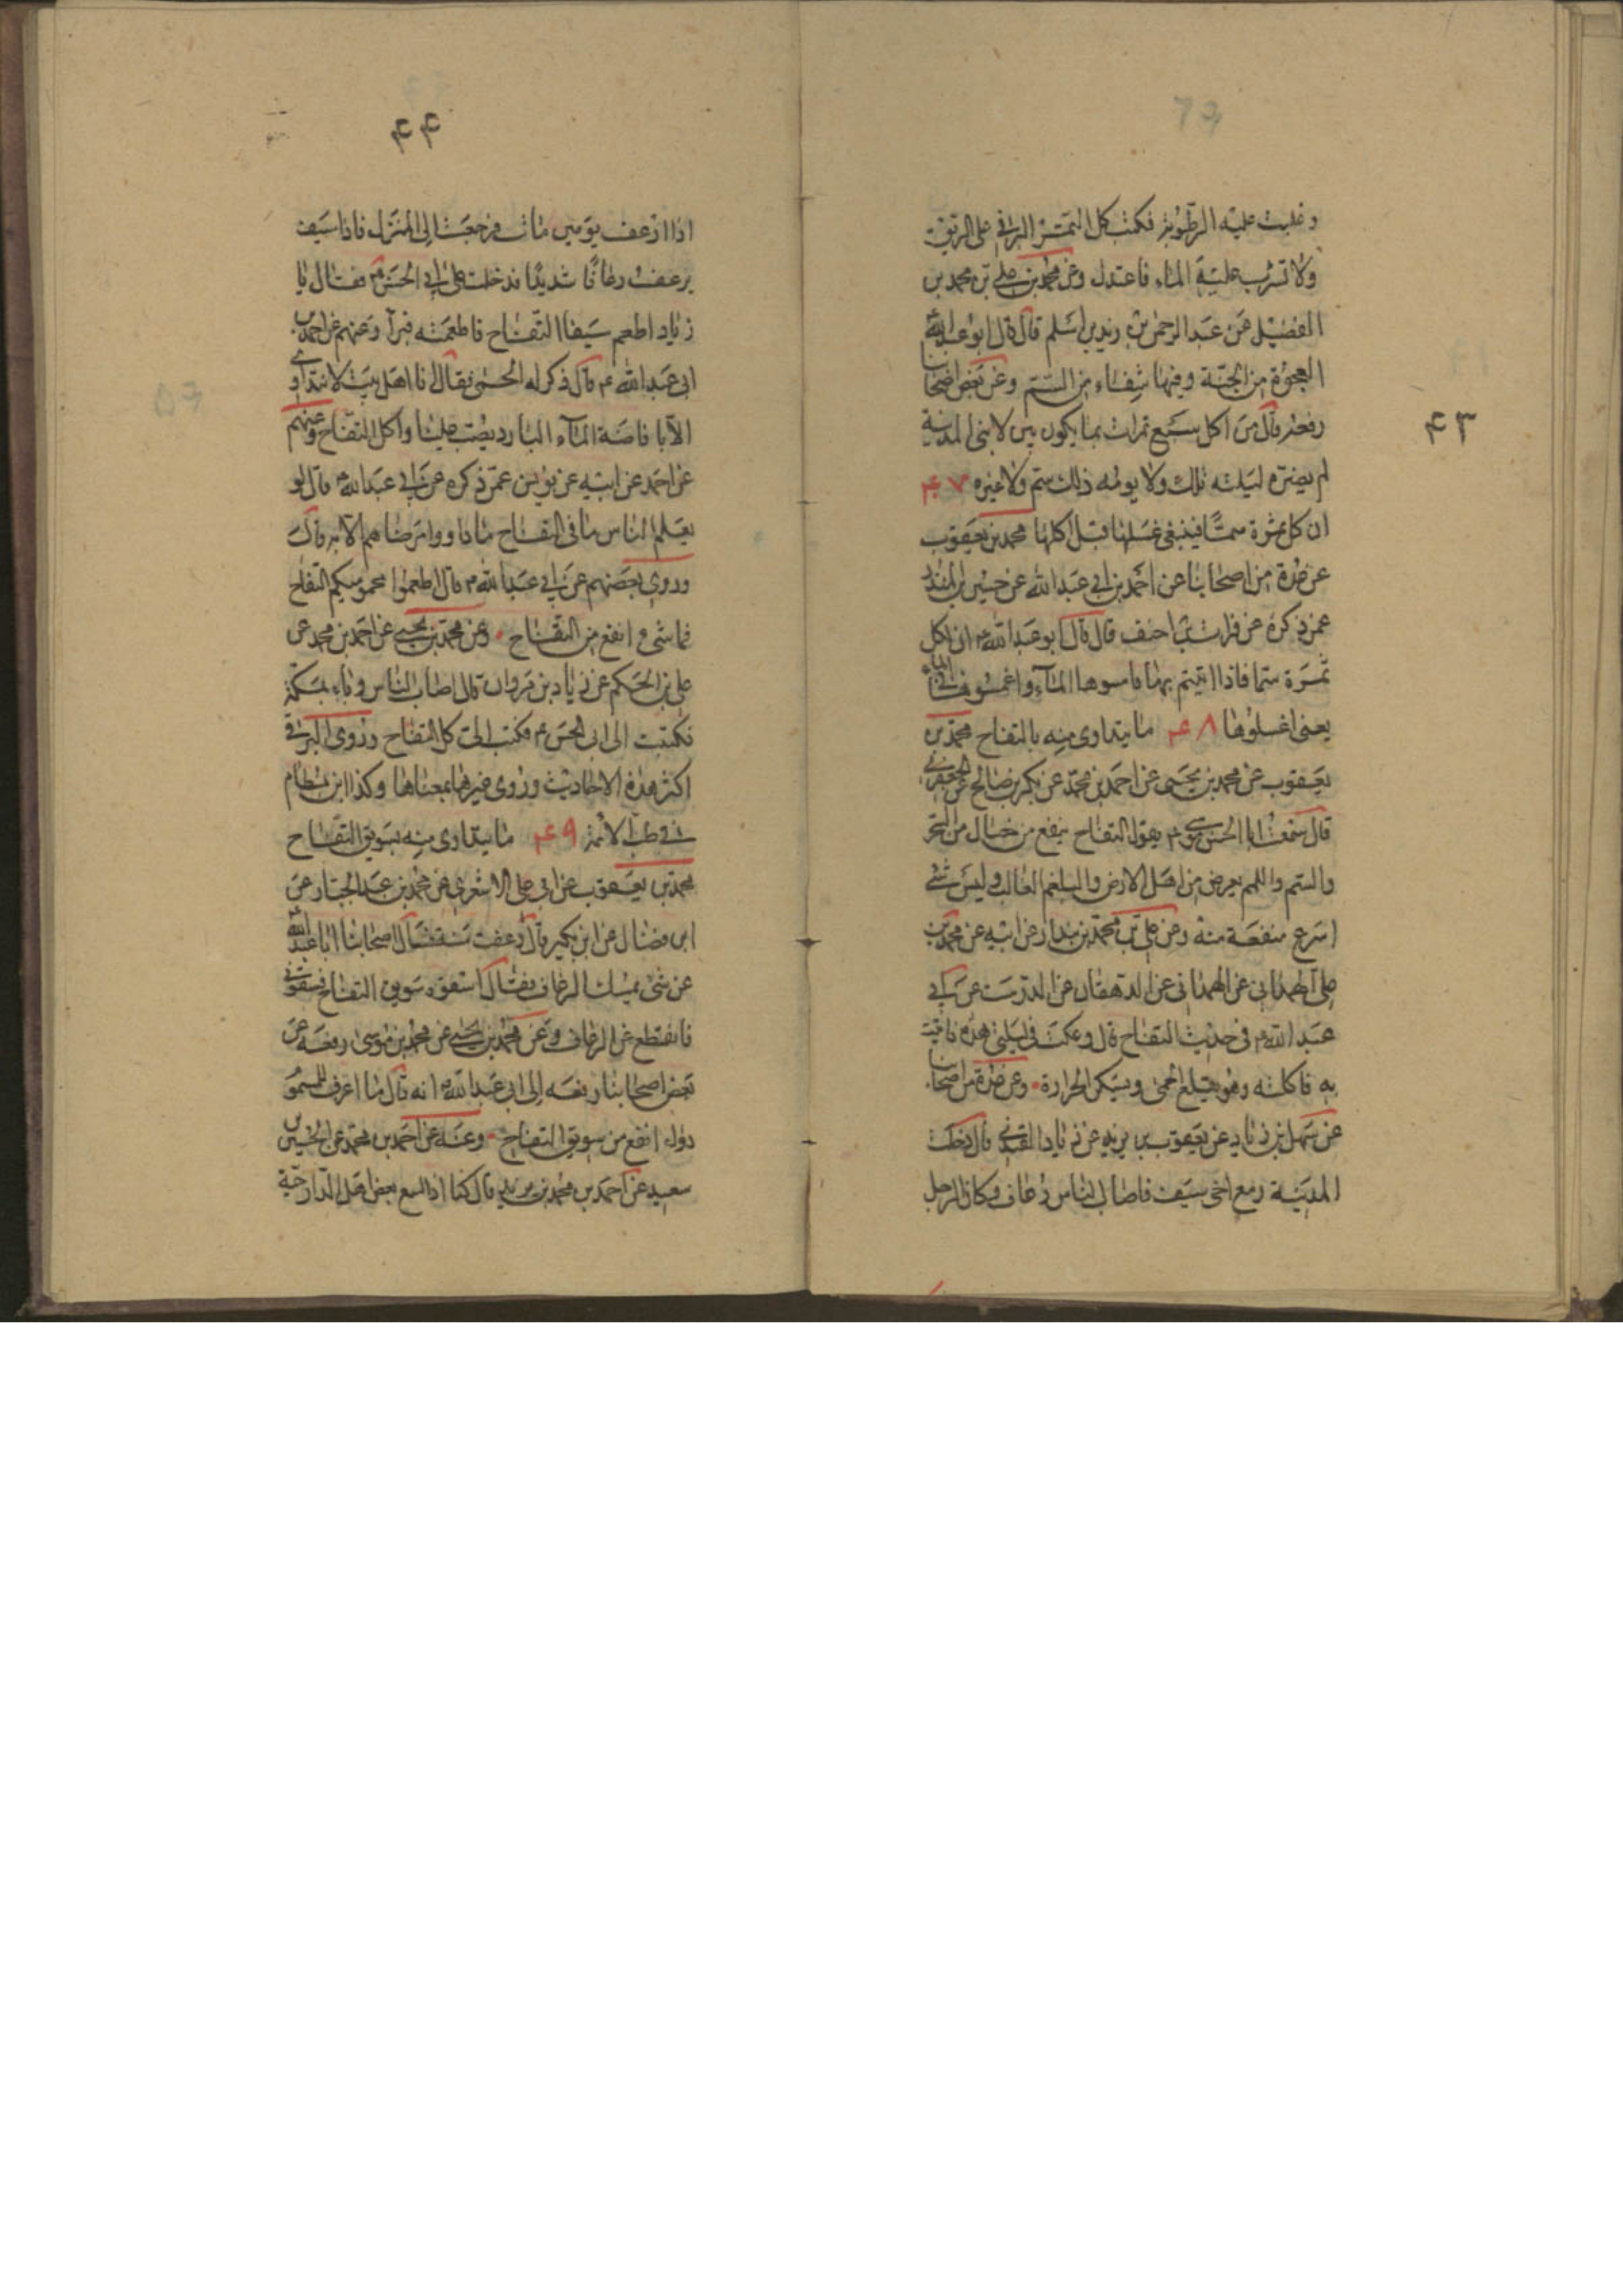 وغلبت عليه الرطوبة فكتب كل التمر البرني على الريق
ولا تشرب عليه الماء فاعتدل وعن محمد بن علي بن محمد بن
الفضيل عن عبد الرحمن بن زيد بن اسلم قال قال ابو عبد الله
العجوة من الجنة وفيها شفاء من السم وعن بعض اصحابنا
رفعه قال من اكل سبع تمرات مما يكون بين لابتي المدينة
لم يضره ليلته تلك ولا يومه ذلك سم ولا غيره ۴۷
۴۳
ان كل ثمرة سمًا فينبغي غسلها قبل اكلها محمد بن يعقوب
عن عدة من اصحابنا عن احمد بن ابي عبد الله عن حسين بن المنذر
عمن ذكره عن فرات بن احنف قال قال ابو عبد الله ع ان لكل
ثمرة سما فاذا اتيتم بها فامسوها الماء واغمسوها في الماء
يعني اغسلوها ۴۸ ما يتداوى منه بالتفاح محمد بن
يعقوب عن محمد بن يحيى عن احمد بن محمد عن بكر بن صالح عن الجعفري
قال سمعت ابا الحسن موسى ع يقول التفاح ينفع من خصال من السحر
والسم واللمم يعرض من اهل الارض والبلغم الغالب وليس شئ
اسرع منفعة منه وعن علي بن محمد بن بندار عن ابيه عن محمد بن
علي الهمداني عن الهمداني عن الدهقان عن الدرست عن ابي
عبد الله ع في حديث التفاح قال وعكت في ليلتي هذه فاتيت
به فاكلته وهو يقلع الحمى ويسكن الحرارة وعن عدة من اصحابنا
عن سهل بن زياد عن يعقوب بن يزيد عن زياد القندي قال دخلت
المدينة ومع اخي سيف فاصاب الناس رعاف وكان الرجل
۴۴
اذا ارعف يومين مات فرجعت الى المنزل فاذا سيف
يرعف رعافًا شديدًا فدخلت على ابي الحسن ع فقال يا
زياد اطعم سيفا التفاح فاطعمته فبرأ وعنهم عن احمد بن
ابي عبد الله ع قال ذكر له الحمى فقال انا اهل بيت لا نتداوى
الا بافاضة الماء البارد يصب علينا واكل التفاح وعنهم
عن احمد عن ابيه عن يونس عمن ذكره عن ابي عبد الله ع قال لو
يعلم الناس ما في التفاح ما داووا مرضاهم الا به قال
وروى بعضهم عن ابي عبد الله ع قال اطعموا محموميكم التفاح
فما شئ انفع من التفاح وعن محمد بن يحيى عن احمد بن محمد عن
علي بن الحكم عن زياد بن مروان قال اصاب الناس وباء بمكة
فكتبت الى ابي الحسن ع فكتب الي كل التفاح وروى البرقي
اكثر هذه الاحاديث وروى غيرها بمعناها وكذا ابن بسطام
في طب الائمة ۴۹ ما يتداوى منه بسويق التفاح
محمد بن يعقوب عن ابي علي الاشعري عن محمد بن عبد الجبار عن
ابن فضال عن ابن بكير قال رعفت سنة فسأل اصحابنا ابا عبد الله ع
عن شئ يمسك الرعاف فقال اسقوه سويق التفاح فسقوني
فانقطع عني الرعاف وعن محمد بن يحيى عن محمد بن موسى رفعه عن
بعض اصحابنا رفعه الى ابي عبد الله ع انه قال ما اعرف للسموم
دواء انفع من سويق التفاح وعنه عن احمد بن محمد عن الحسين بن
سعيد عن احمد بن محمد بن يزيد قال كنا اذا لسع بعض اهل الدار حية